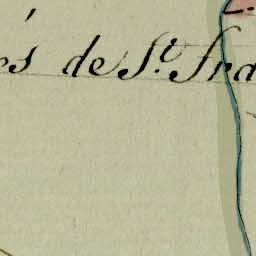 és de S.t Fra